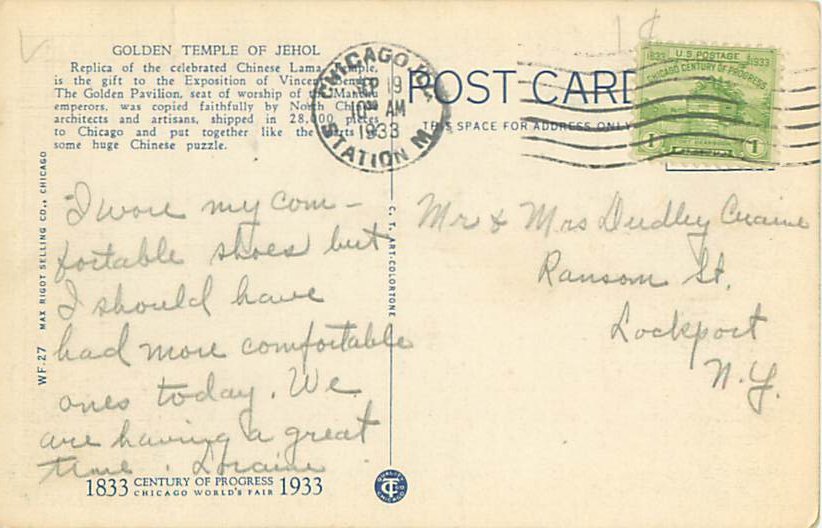 1¢
GOLDEN TEMPLE OF JEHOL
Replica of the celebrated Chinese Lama Temple,
is the gift to the Exposition of Vincent Bendix.
The Golden Pavilion, seat of worship of the Manchu
emperors, was copied faithfully by North China
architects and artisans, shipped in 28,000 pieces
to Chicago and put together like the parts of
some huge Chinese puzzle.
CHICAGO, ILL.
SEP 19
AM
1933
STATION M.
POST CARD
THIS SPACE FOR ADDRESS ONLY
U.S. POSTAGE
1833 1933
CHICAGO CENTURY OF PROGRESS
1 1
I wore my com-
fortable shoes but
I should have
had more comfortable
ones today. We
are having a great
time. Loraine
Mr & Mrs Dudley
Ransom St.
Lockport
N.Y.
WF.27 MAX RIGOT SELLING CO., CHICAGO
C. T. ART-COLORTONE
1833 CENTURY OF PROGRESS 1933
CHICAGO WORLD'S FAIR
CT